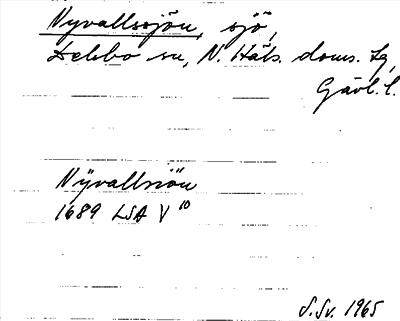 Nyvallssjön, sjö,
Delsbo sn, N. Häls. doms. tg,
Gävl. l.
Nÿvallsiön
1689 LSA V 10
S. Sv. 1965